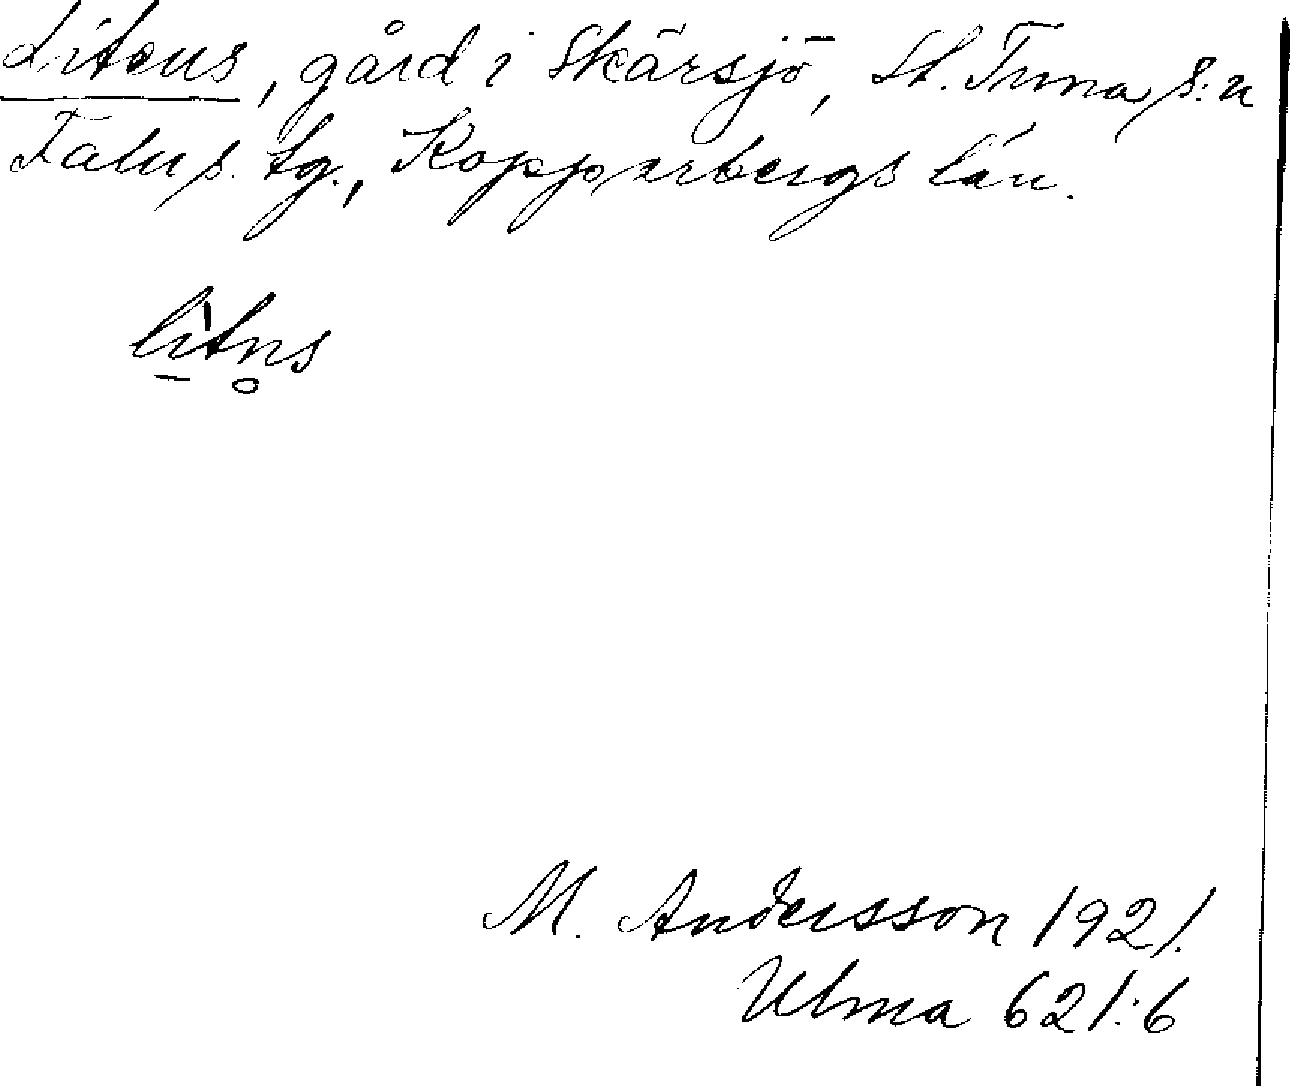 Litens, gård i Skärsjö, St. Tuna s:n
Falu s. tg., Kopparbergs län.
lìtn̥s
M. Andersson 1921.
Ulma 621:6